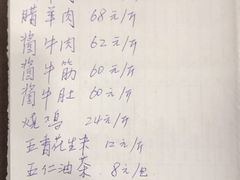 腊羊肉 68元/斤
酱牛肉 62元/斤
酱牛筋 60元/斤
酱牛肚 60元/斤
烧鸡 24元/斤
五香花生米 12元/斤
五仁油茶 8元/包